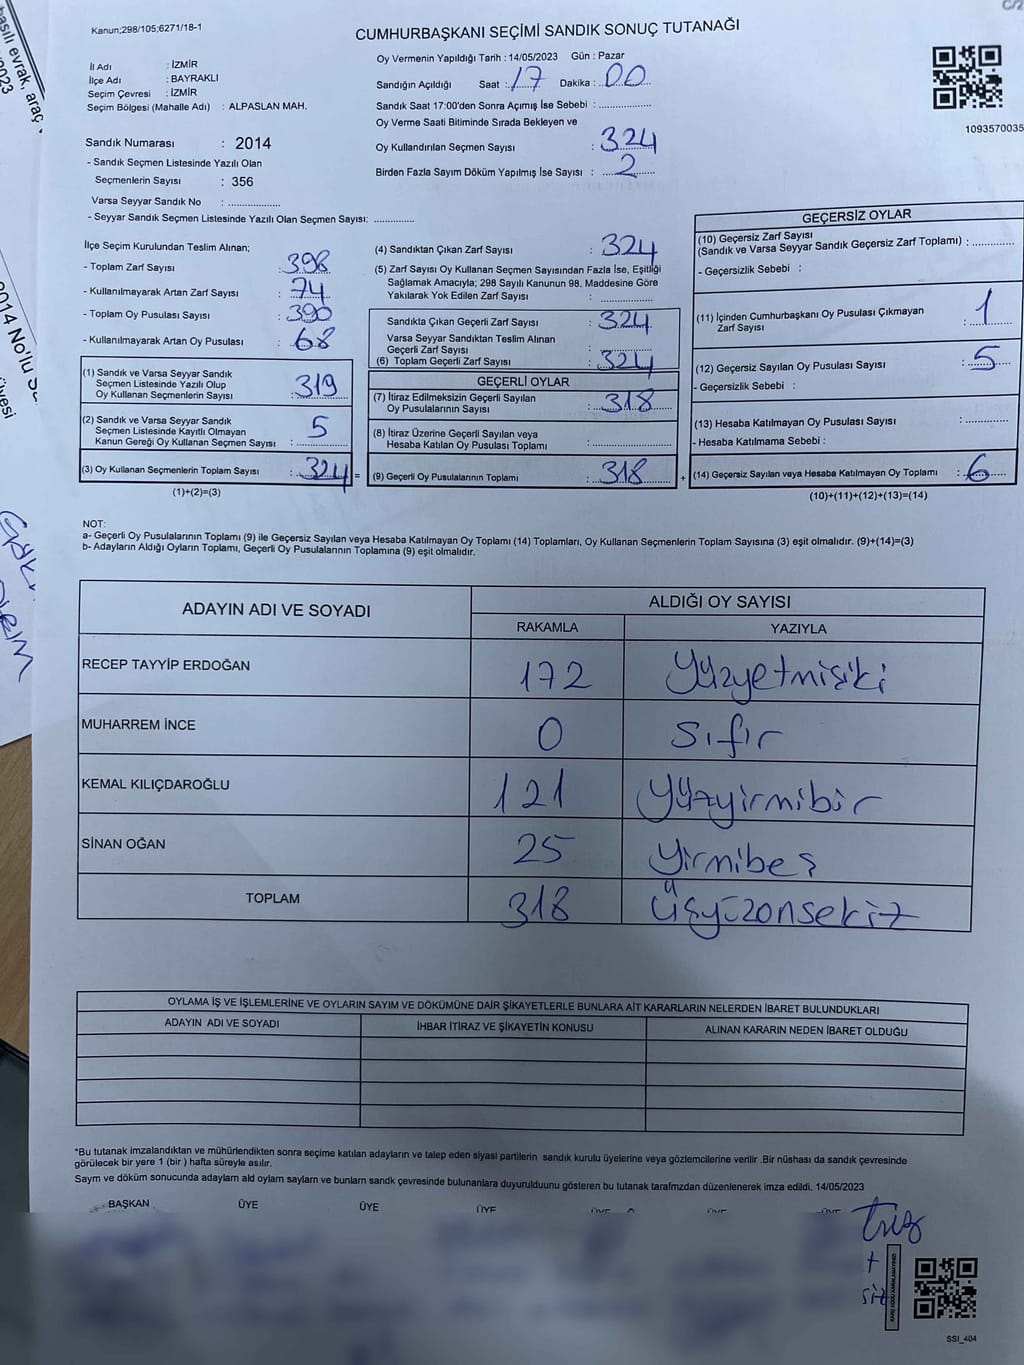 Kanun;298/105;6271/18-1
CUMHURBAŞKANI SEÇİMİ SANDIK SONUÇ TUTANAĞI
C/2
basılı evrak, araç
2023
2014 No'lu
üyesi
İl Adı : İZMİR
İlçe Adı : BAYRAKLI
Seçim Çevresi : İZMİR
Seçim Bölgesi (Mahalle Adı) : ALPASLAN MAH.
Sandık Numarası : 2014
- Sandık Seçmen Listesinde Yazılı Olan
Seçmenlerin Sayısı : 356
Varsa Seyyar Sandık No : ..............
- Seyyar Sandık Seçmen Listesinde Yazılı Olan Seçmen Sayısı: ............
Oy Vermenin Yapıldığı Tarih : 14/05/2023 Gün : Pazar
Sandığın Açıldığı Saat : 17 Dakika : 00
Sandık Saat 17:00'den Sonra Açımış İse Sebebi : ..............
Oy Verme Saati Bitiminde Sırada Bekleyen ve
Oy Kullandırılan Seçmen Sayısı : 324
Birden Fazla Sayım Döküm Yapılmış İse Sayısı : 2
1093570035
İlçe Seçim Kurulundan Teslim Alınan;
- Toplam Zarf Sayısı : 398
- Kullanılmayarak Artan Zarf Sayısı : 74
- Toplam Oy Pusulası Sayısı : 390
- Kullanılmayarak Artan Oy Pusulası : 68
(1) Sandık ve Varsa Seyyar Sandık
Seçmen Listesinde Yazılı Olup
Oy Kullanan Seçmenlerin Sayısı : 319
(2) Sandık ve Varsa Seyyar Sandık
Seçmen Listesinde Kayıtlı Olmayan
Kanun Gereği Oy Kullanan Seçmen Sayısı : 5
(3) Oy Kullanan Seçmenlerin Toplam Sayısı : 324
(1)+(2)=(3)
(4) Sandıktan Çıkan Zarf Sayısı : 324
(5) Zarf Sayısı Oy Kullanan Seçmen Sayısından Fazla İse, Eşitliği
Sağlamak Amacıyla; 298 Sayılı Kanunun 98. Maddesine Göre
Yakılarak Yok Edilen Zarf Sayısı : ..............
Sandıkta Çıkan Geçerli Zarf Sayısı : 324
Varsa Seyyar Sandıktan Teslim Alınan
Geçerli Zarf Sayısı : ..............
(6) Toplam Geçerli Zarf Sayısı : 324
GEÇERLİ OYLAR
(7) İtiraz Edilmeksizin Geçerli Sayılan
Oy Pusulalarının Sayısı : 318
(8) İtiraz Üzerine Geçerli Sayılan veya
Hesaba Katılan Oy Pusulası Toplamı : ..............
= (9) Geçerli Oy Pusulalarının Toplamı : 318 +
GEÇERSİZ OYLAR
(10) Geçersiz Zarf Sayısı
(Sandık ve Varsa Seyyar Sandık Geçersiz Zarf Toplamı) : ............
- Geçersizlik Sebebi :
(11) İçinden Cumhurbaşkanı Oy Pusulası Çıkmayan
Zarf Sayısı : 1
(12) Geçersiz Sayılan Oy Pusulası Sayısı : 5
- Geçersizlik Sebebi :
(13) Hesaba Katılmayan Oy Pusulası Sayısı : ............
- Hesaba Katılmama Sebebi :
(14) Geçersiz Sayılan veya Hesaba Katılmayan Oy Toplamı : 6
(10)+(11)+(12)+(13)=(14)
NOT:
a- Geçerli Oy Pusulalarının Toplamı (9) ile Geçersiz Sayılan veya Hesaba Katılmayan Oy Toplamı (14) Toplamları, Oy Kullanan Seçmenlerin Toplam Sayısına (3) eşit olmalıdır. (9)+(14)=(3)
b- Adayların Aldığı Oyların Toplamı, Geçerli Oy Pusulalarının Toplamına (9) eşit olmalıdır.
ADAYIN ADI VE SOYADI
ALDIĞI OY SAYISI
RAKAMLA YAZIYLA
RECEP TAYYİP ERDOĞAN 172 Yüzyetmişiki
MUHARREM İNCE 0 Sıfır
KEMAL KILIÇDAROĞLU 121 Yüzyirmibir
SİNAN OĞAN 25 Yirmibeş
TOPLAM 318 Üçyüzonsekiz
OYLAMA İŞ VE İŞLEMLERİNE VE OYLARIN SAYIM VE DÖKÜMÜNE DAİR ŞİKAYETLERLE BUNLARA AİT KARARLARIN NELERDEN İBARET BULUNDUKLARI
ADAYIN ADI VE SOYADI İHBAR İTİRAZ VE ŞİKAYETİN KONUSU ALINAN KARARIN NEDEN İBARET OLDUĞU
*Bu tutanak imzalandıktan ve mühürlendikten sonra seçime katılan adayların ve talep eden siyasi partilerin sandık kurulu üyelerine veya gözlemcilerine verilir .Bir nüshası da sandık çevresinde
görülecek bir yere 1 (bir ) hafta süreyle asılır.
Sayım ve döküm sonucunda adaylam ald oylam saylam ve bunlam sandk çevresinde bulunanlara duyurulduunu gösteren bu tutanak tarafmzdan düzenlenerek imza edildi. 14/05/2023
BAŞKAN ÜYE ÜYE ÜYE ÜYE ÜYE ÜYE
SSI_404